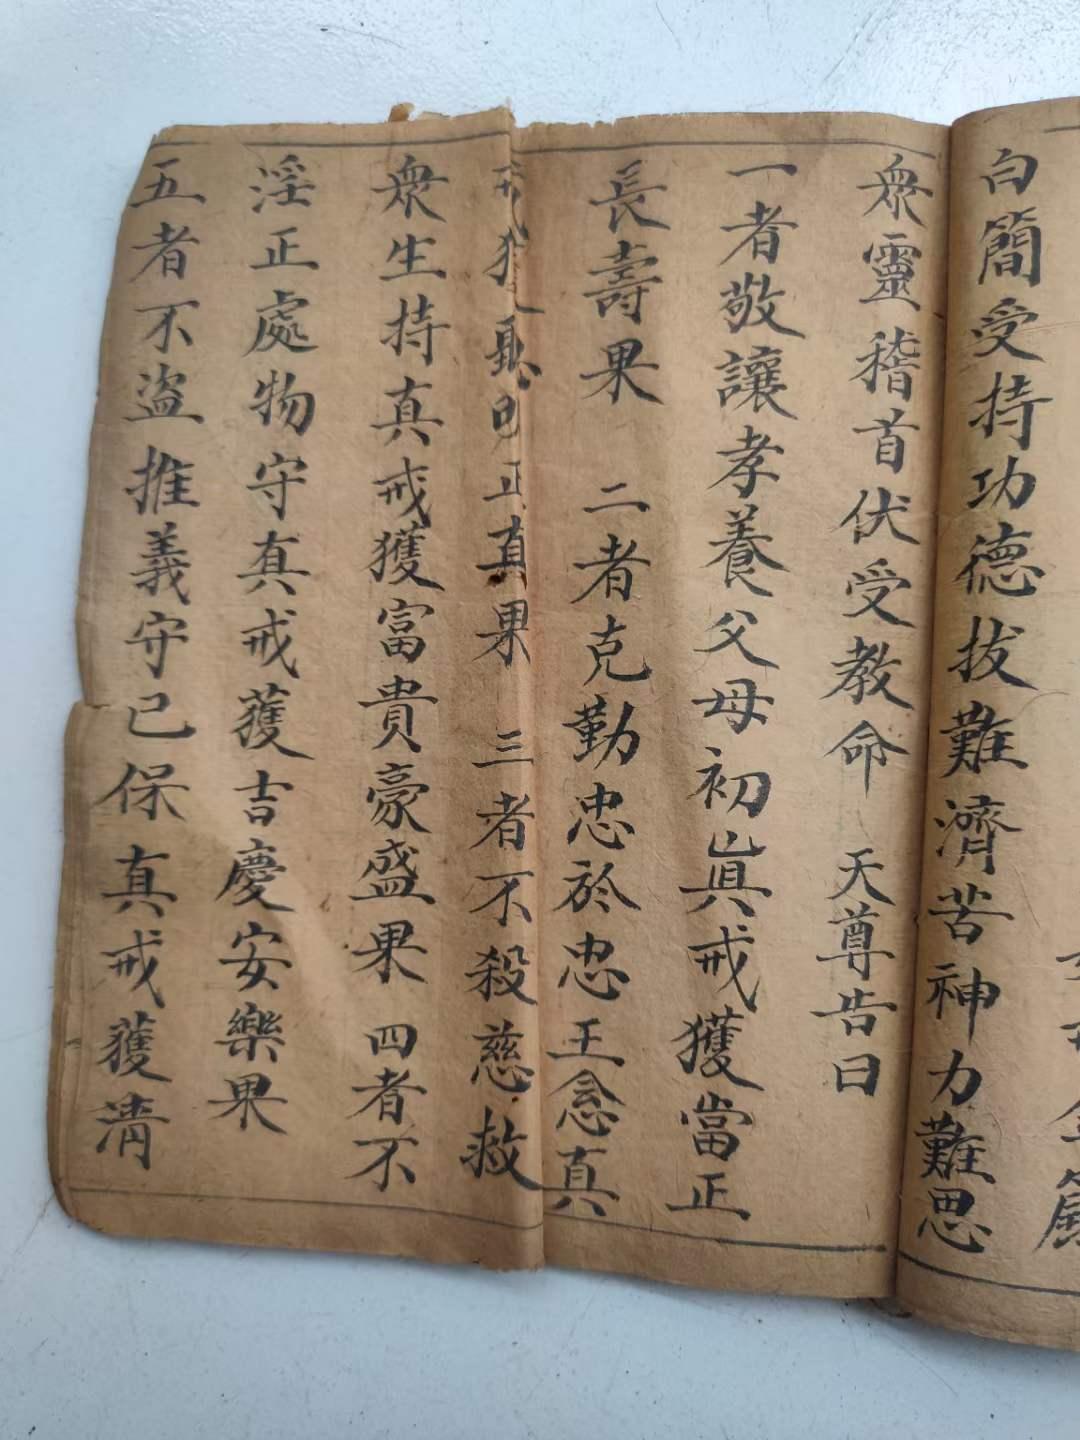 白簡受持功德拔難濟苦神力難思
衆靈稽首伏受教命 天尊告曰
一者敬讓孝養父母初真戒獲當正
長壽果 二者克勤忠於忠王念真
戒獲 正真果 三者不殺慈救
衆生持真戒獲富貴豪盛果 四者不
淫正處物守真戒獲吉慶安樂果
五者不盜推義守已保真戒獲清